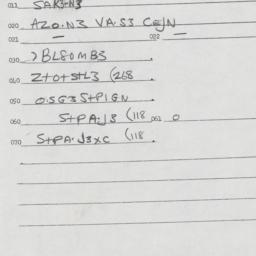 011 SAK3+N3
020 AZO.N3 VA.S3 CEJN
021 — 022 —
030 >BL80MB3
040 Z+O+S+L3 (268
050 O.SG3S+PIGN
060 S+PA:J3 (118 061 0
070 S+PA.J3XC (118